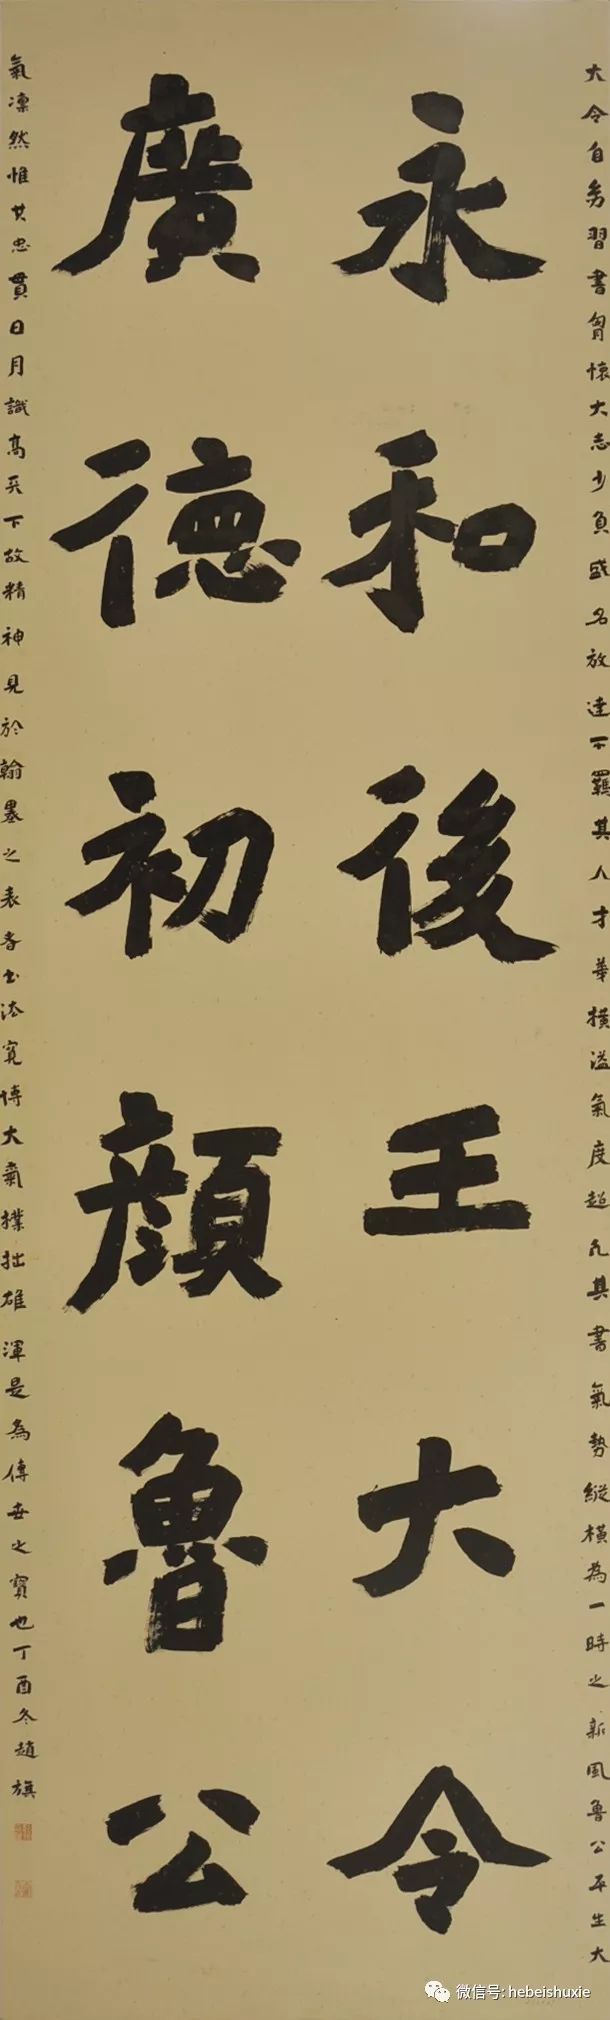 大令自幼習書胷懷大志少負盛名放達不羈其人才華横溢氣度超凡其書氣勢縱横為一時之新風魯公平生大
永和後王大令
廣德初顏魯公
氣凛然惟其忠貫日月識高天下故精神見於翰墨之表者書法寬博大氣樸拙雄渾是為傳世之寶也丁酉冬趙旗
微信号: hebeishuxie